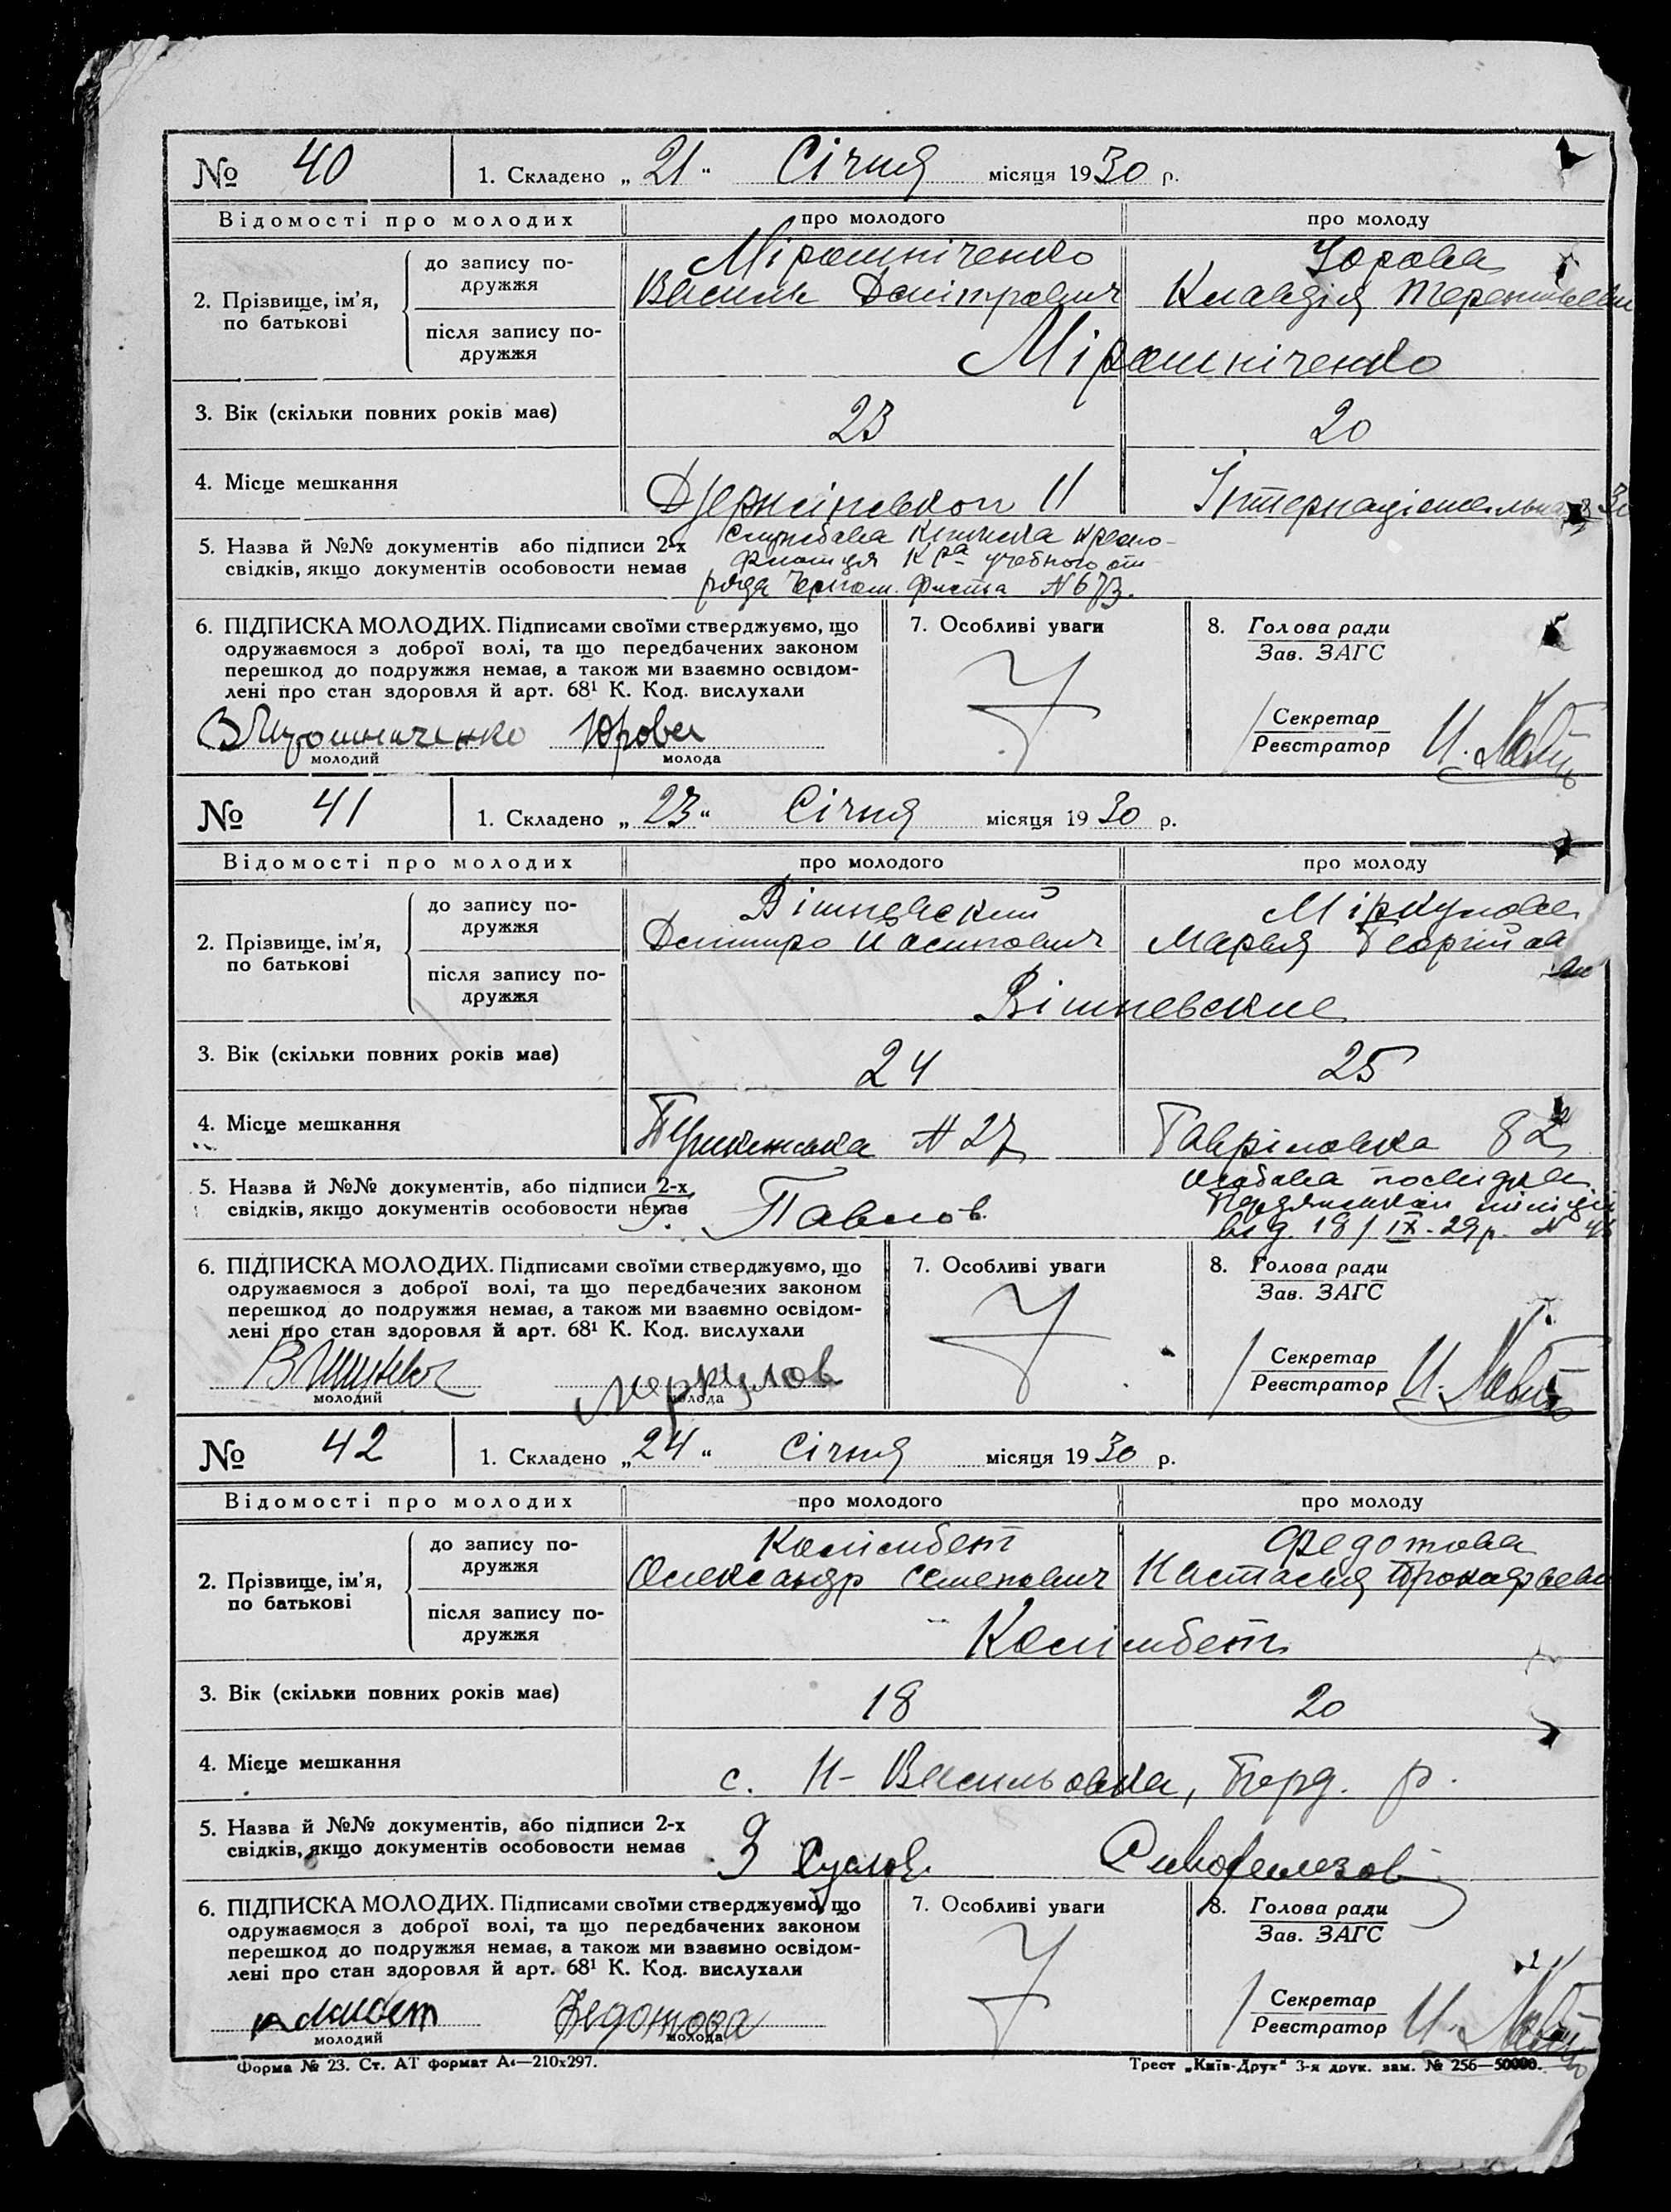 № 40 1. Складено „21“ Січня місяця 1930 р.
Відомості про молодих про молодого про молоду
2. Прізвище, ім'я, по батькові
до запису по-
дружжя
Мірошніченко
Василь Дмітрович
Клавдія
після запису по-
дружжя
Мірошніченко
3. Вік (скільки повних років має) 23 20
4. Місце мешкання 11 Інтернаціональна 30
5. Назва й №№ документів або підписи 2-х
свідків, якщо документів особовости немає
Службова Книжка
учебного от-
ряда флота
6. ПІДПИСКА МОЛОДИХ. Підписами своїми стверджуємо, що
одружаємося з доброї волі, та що передбачених законом
перешкод до подружжя немає, а також ми взаємно освідом-
лені про стан здоровля й арт. 68¹ К. Код. вислухали
В Мирошниченко Юрова
молодий молода
7. Особливі уваги
8. Голова ради
Зав. ЗАГС
Секретар
Реєстратор
№ 41 1. Складено „23“ Січня місяця 1930 р.
Відомості про молодих про молодого про молоду
2. Прізвище, ім'я,
по батькові
до запису по-
дружжя
Вішневский Міркулова
Дмитро Марья Георгиевна
після запису по-
дружжя
Вішневские
3. Вік (скільки повних років має) 24 25
4. Місце мешкання N 27 Гавріловка 82
5. Назва й №№ документів, або підписи 2-х
свідків, якщо документів особовости немає
Павлов
від. 18/IX-29р. N
6. ПІДПИСКА МОЛОДИХ. Підписами своїми стверджуємо, що
одружаємося з доброї волі, та що передбачених законом
перешкод до подружжя немає, а також ми взаємно освідом-
лені про стан здоровля й арт. 68¹ К. Код. вислухали
Меркулов
молодий молода
7. Особливі уваги
8. Голова ради
Зав. ЗАГС
Секретар
Реєстратор
№ 42 1. Складено „24“ Січня місяця 1930 р.
Відомості про молодих про молодого про молоду
2. Прізвище, ім'я,
по батькові
до запису по-
дружжя
Калімбет Федотова
Олександр Семенович Настасья
після запису по-
дружжя
Калімбет
3. Вік (скільки повних років має) 18 20
4. Місце мешкання с. Н-Васильовка, Берд. р.
5. Назва й №№ документів, або підписи 2-х
свідків, якщо документів особовости немає
6. ПІДПИСКА МОЛОДИХ. Підписами своїми стверджуємо, що
одружаємося з доброї волі, та що передбачених законом
перешкод до подружжя немає, а також ми взаємно освідом-
лені про стан здоровля й арт. 68¹ К. Код. вислухали
Федотова
молодий молода
7. Особливі уваги
8. Голова ради
Зав. ЗАГС
Секретар
Реєстратор
Форма № 23. Ст. АТ формат А₄—210x297. Трест „Київ-Друк“ 3-я друк. зам. № 256—50000.